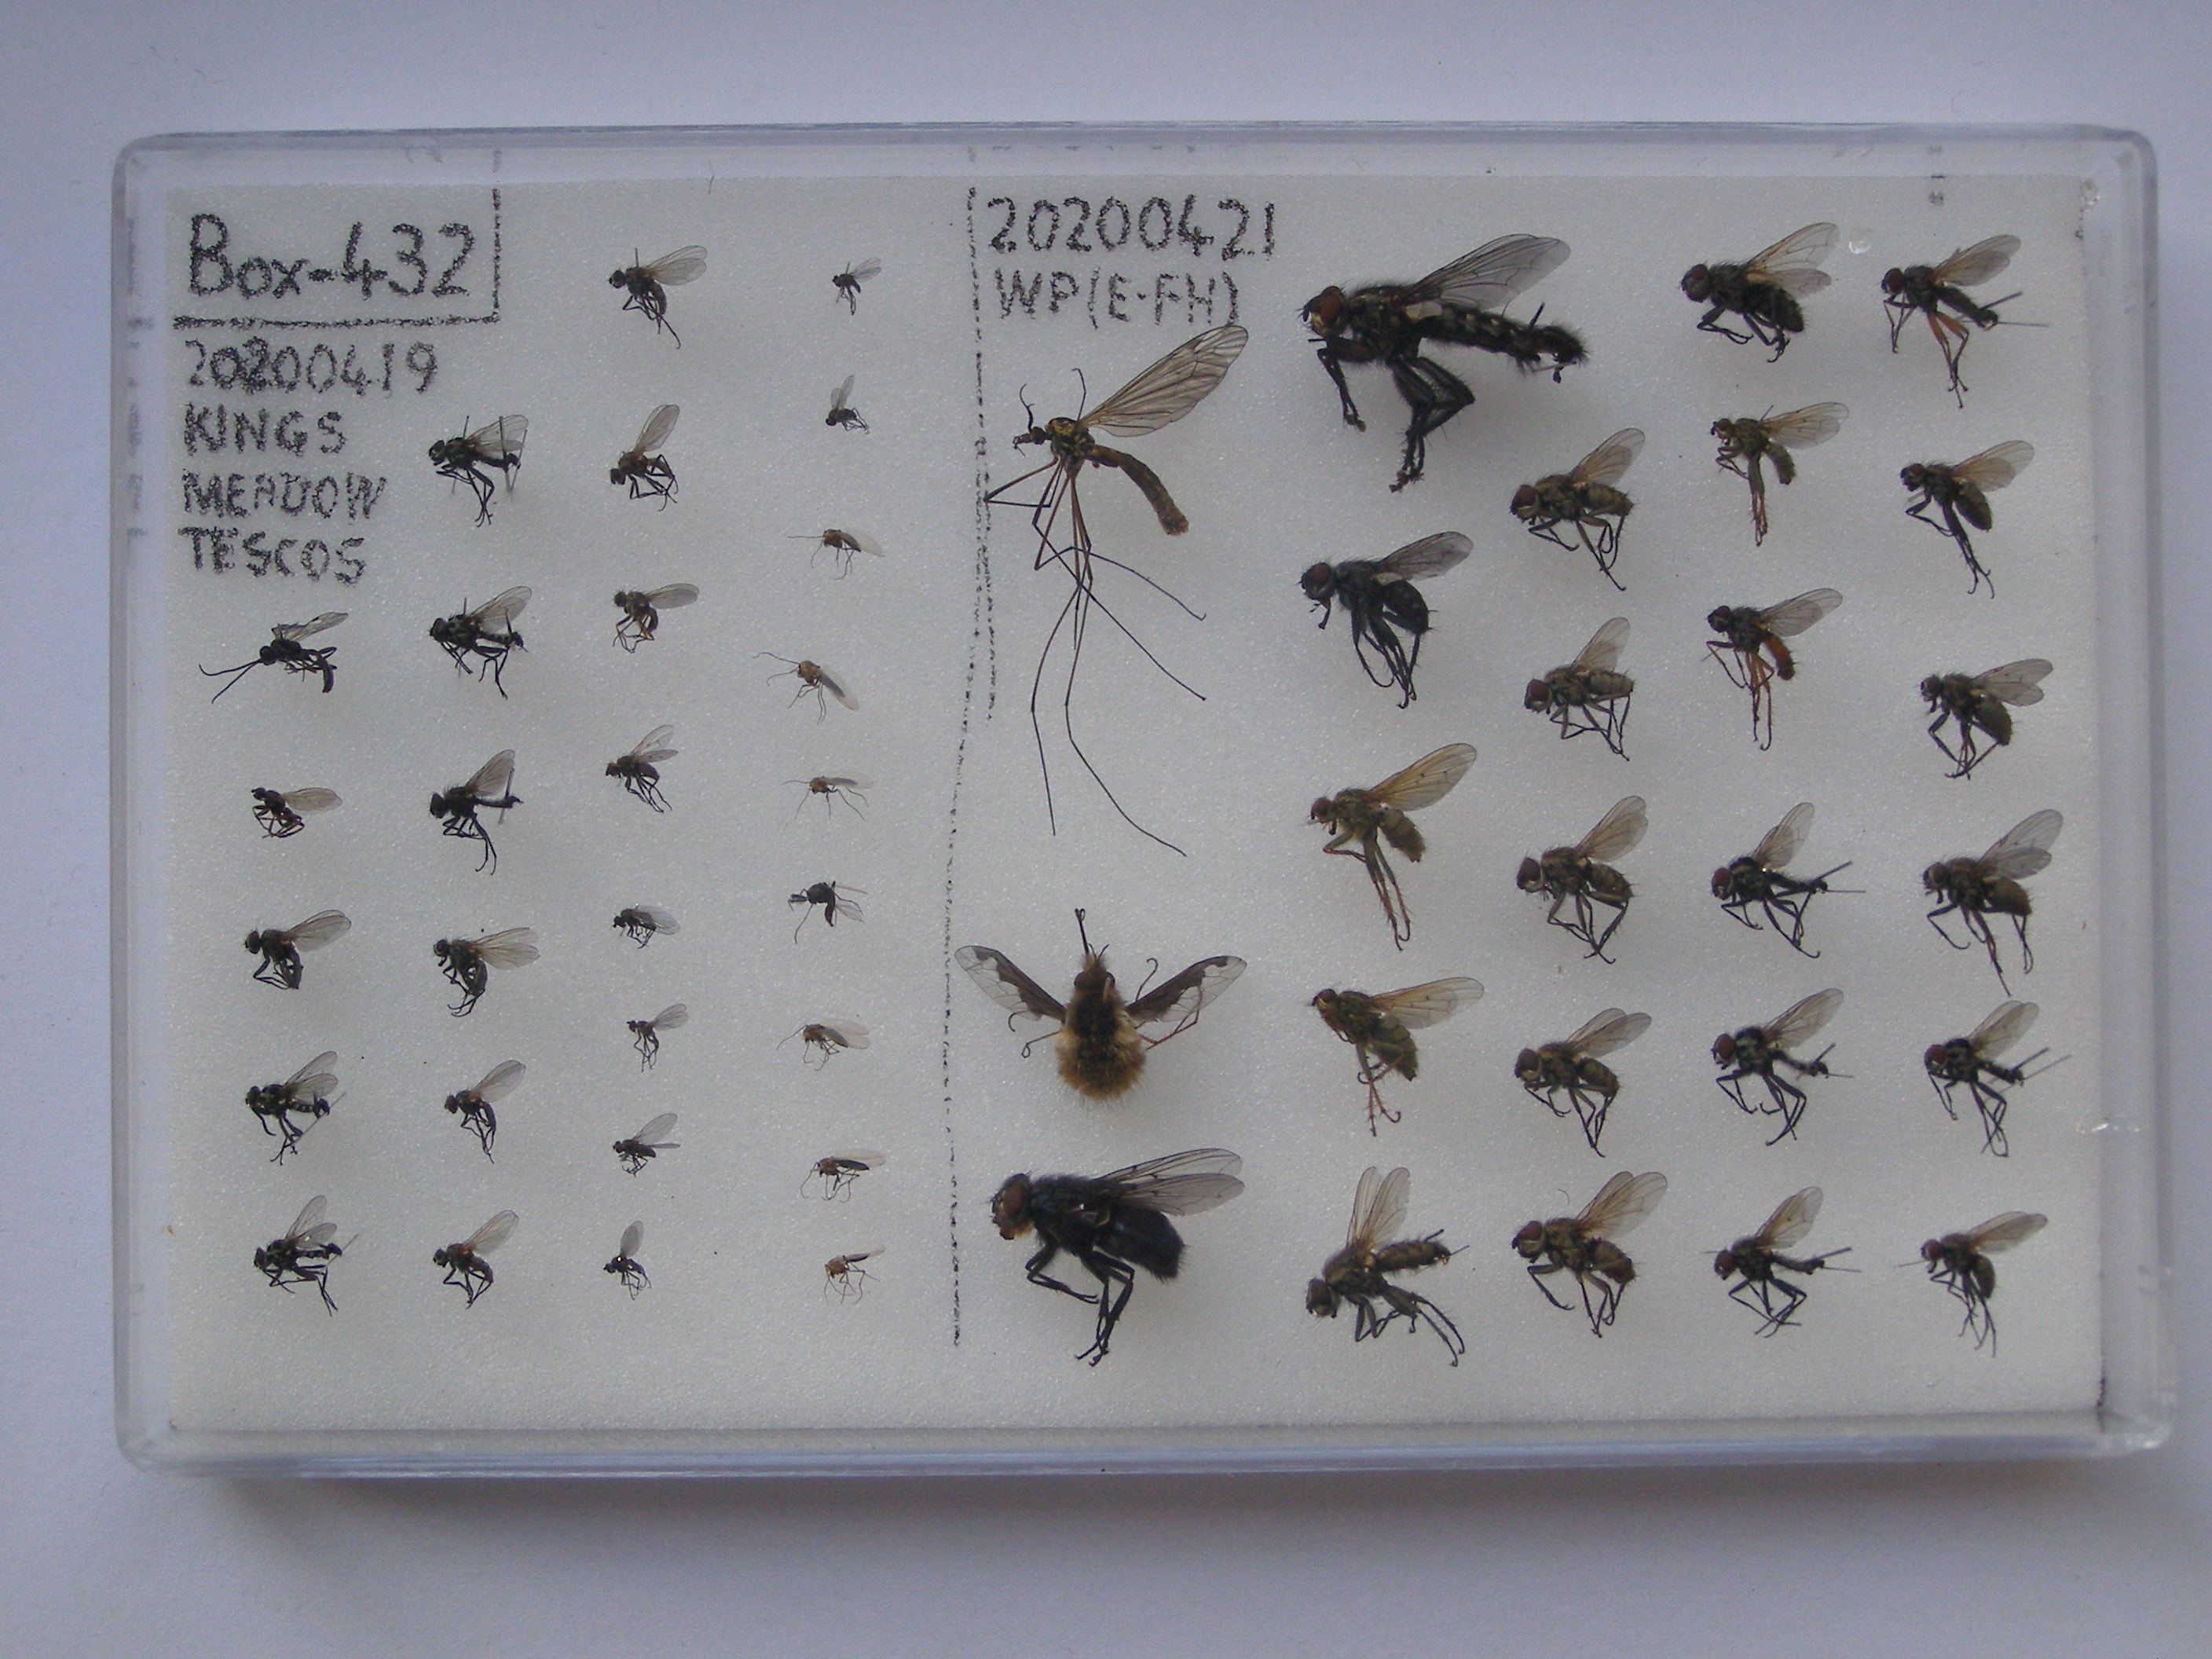 Box-432
20200419
KINGS
MEADOW
TESCOS
20200421
WP(E-FH)